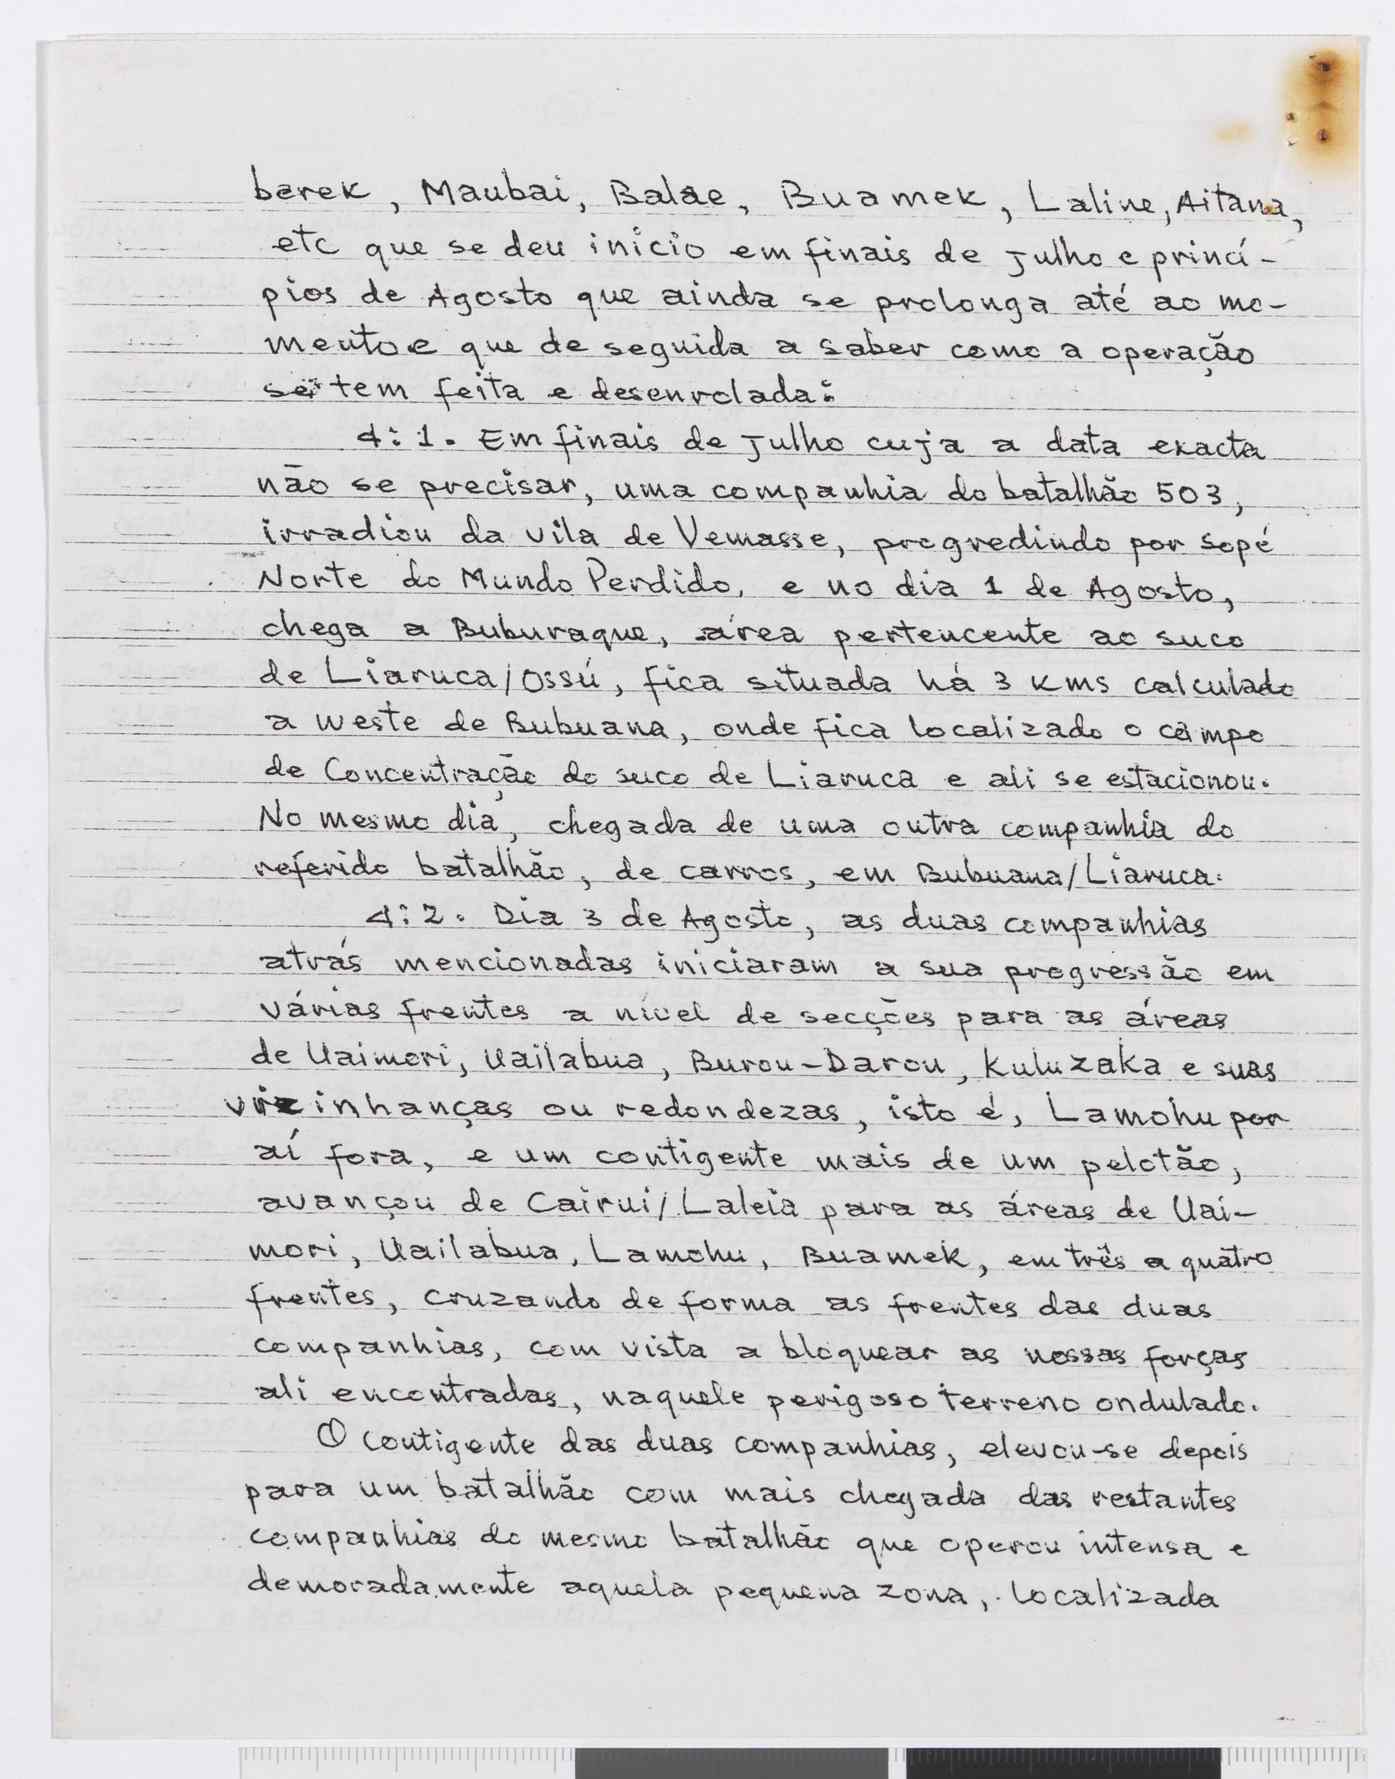 berek, Maubai, Balae, Buamek, Laline, Aitana,
etc que se deu inicio em finais de Julho e princí-
pios de Agosto que ainda se prolonga até ao mo-
mento e que de seguida a saber como a operação
se tem feita e desenrolada:
4:1. Em finais de Julho cuja a data exacta
não se precisar, uma companhia do batalhão 503,
irradiou da vila de Vemasse, progredindo por sopé
Norte do Mundo Perdido, e no dia 1 de Agosto,
chega a Buburaque, área pertencente ao suco
de Liaruca/Ossú, fica situada há 3 kms calculado
a weste de Bubuana, onde fica localizado o campo
de Concentração do suco de Liaruca e ali se estacionou.
No mesmo dia, chegada de uma outra companhia do
referido batalhão, de carros, em Bubuana/Liaruca.
4:2. Dia 3 de Agosto, as duas companhias
atrás mencionadas iniciaram a sua progressão em
várias frentes a nível de secções para as áreas
de Uaimori, Uailabua, Burou-Darou, Kuluzaka e suas
vizinhanças ou redondezas, isto é, Lamohu por
aí fora, e um contigente mais de um pelotão,
avançou de Cairui/Laleia para as áreas de Uai-
mori, Uailabua, Lamohu, Buamek, em três a quatro
frentes, cruzando de forma as frentes das duas
companhias, com vista a bloquear as nossas forças
ali encontradas, naquele perigoso terreno ondulado.
O contigente das duas companhias, elevou-se depois
para um batalhão com mais chegada das restantes
companhias do mesmo batalhão que operou intensa e
demoradamente aquela pequena zona, localizada